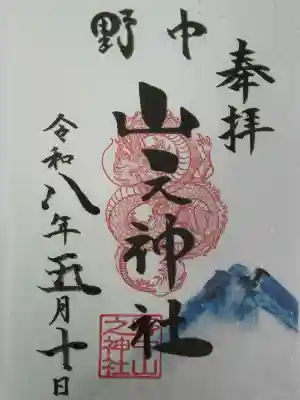 奉拝
野中
山之神社
野中山之神社
令和八年五月十日